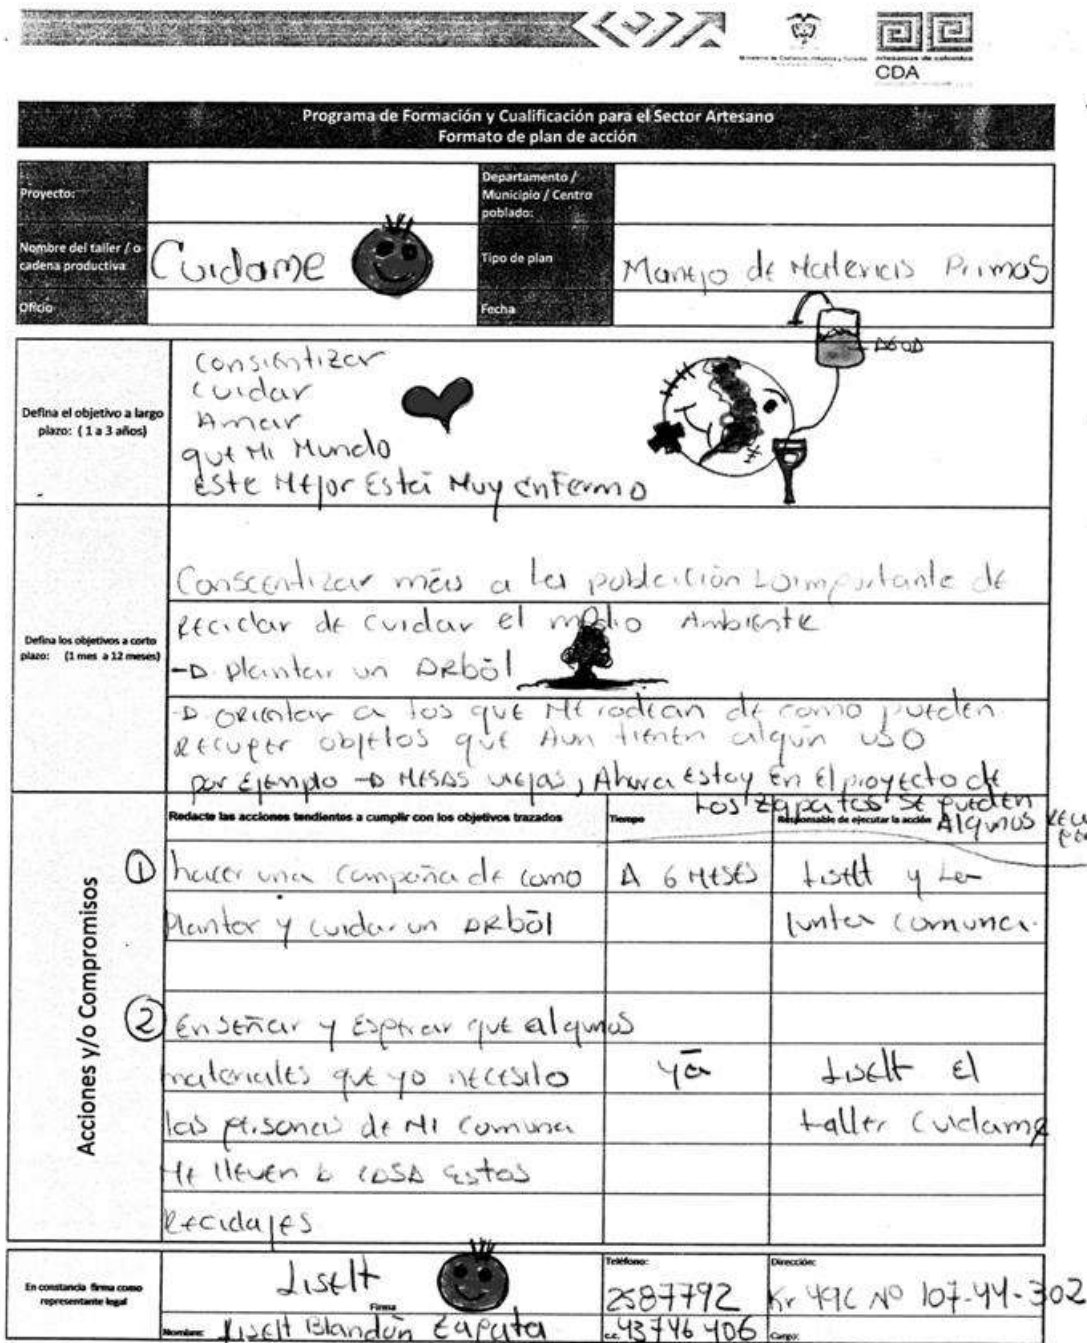 artesanías de colombia
CDA
Programa de Formación y Cualificación para el Sector Artesano
Formato de plan de acción
Proyecto:
Departamento / Municipio / Centro poblado:
Nombre del taller / o cadena productiva
Cuidame
Tipo de plan
Manejo de Materias Primas
Oficio
Fecha
AGUA
Defina el objetivo a largo plazo: ( 1 a 3 años)
Consientizar
Cuidar
Amar
que Mi Mundo
este Mejor Está Muy enfermo
Defina los objetivos a corto plazo: (1 mes a 12 meses)
Conscentizar más a la población Lo importante de
Reciclar de cuidar el medio Ambiente
plantar un ARból
orientar a los que Me rodean de como pueden
Recuper objetos que Aun tienen algún uso
por Ejemplo Mesas viejas, Ahora Estoy En El proyecto de
Los zapatos se pueden
Algunos
Acciones y/o Compromisos
Redacte las acciones tendientes a cumplir con los objetivos trazados
Tiempo
Responsable de ejecutar la acción
1 hacer una campaña de como A 6 MESES Liselt y La
Plantar y cuidar un ARból Junta comuna.
2 Enseñar y Esperar que algunos
materiales que yo necesito ya Liselt El
las personas de Mi comuna taller Cuidame
Me lleven a CASA Estos
Reciclajes
En constancia firma como representante legal
Liselt
Firma
Teléfono:
2587792
Dirección:
Kr 49C Nº 107-44-302
Nombre: Liselt Blandón Zapata
c.c. 43746406
Cargo: